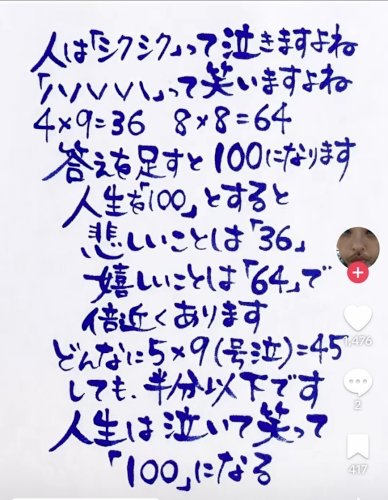 人は「シクシク」って泣きますよね
「ハハハハ」って笑いますよね
4×9=36 8×8=64
答えを足すと100になります
人生を「100」とすると
悲しいことは「36」
嬉しいことは「64」で
倍近くあります
どんなに5×9(号泣)=45
しても、半分以下です
人生は泣いて笑って
「100」になる
1,476
2
417